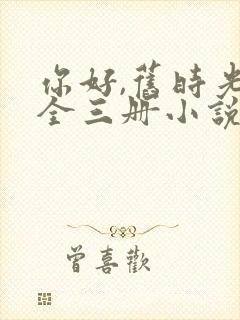 你好,舊時光
全三册小說
曾喜歡